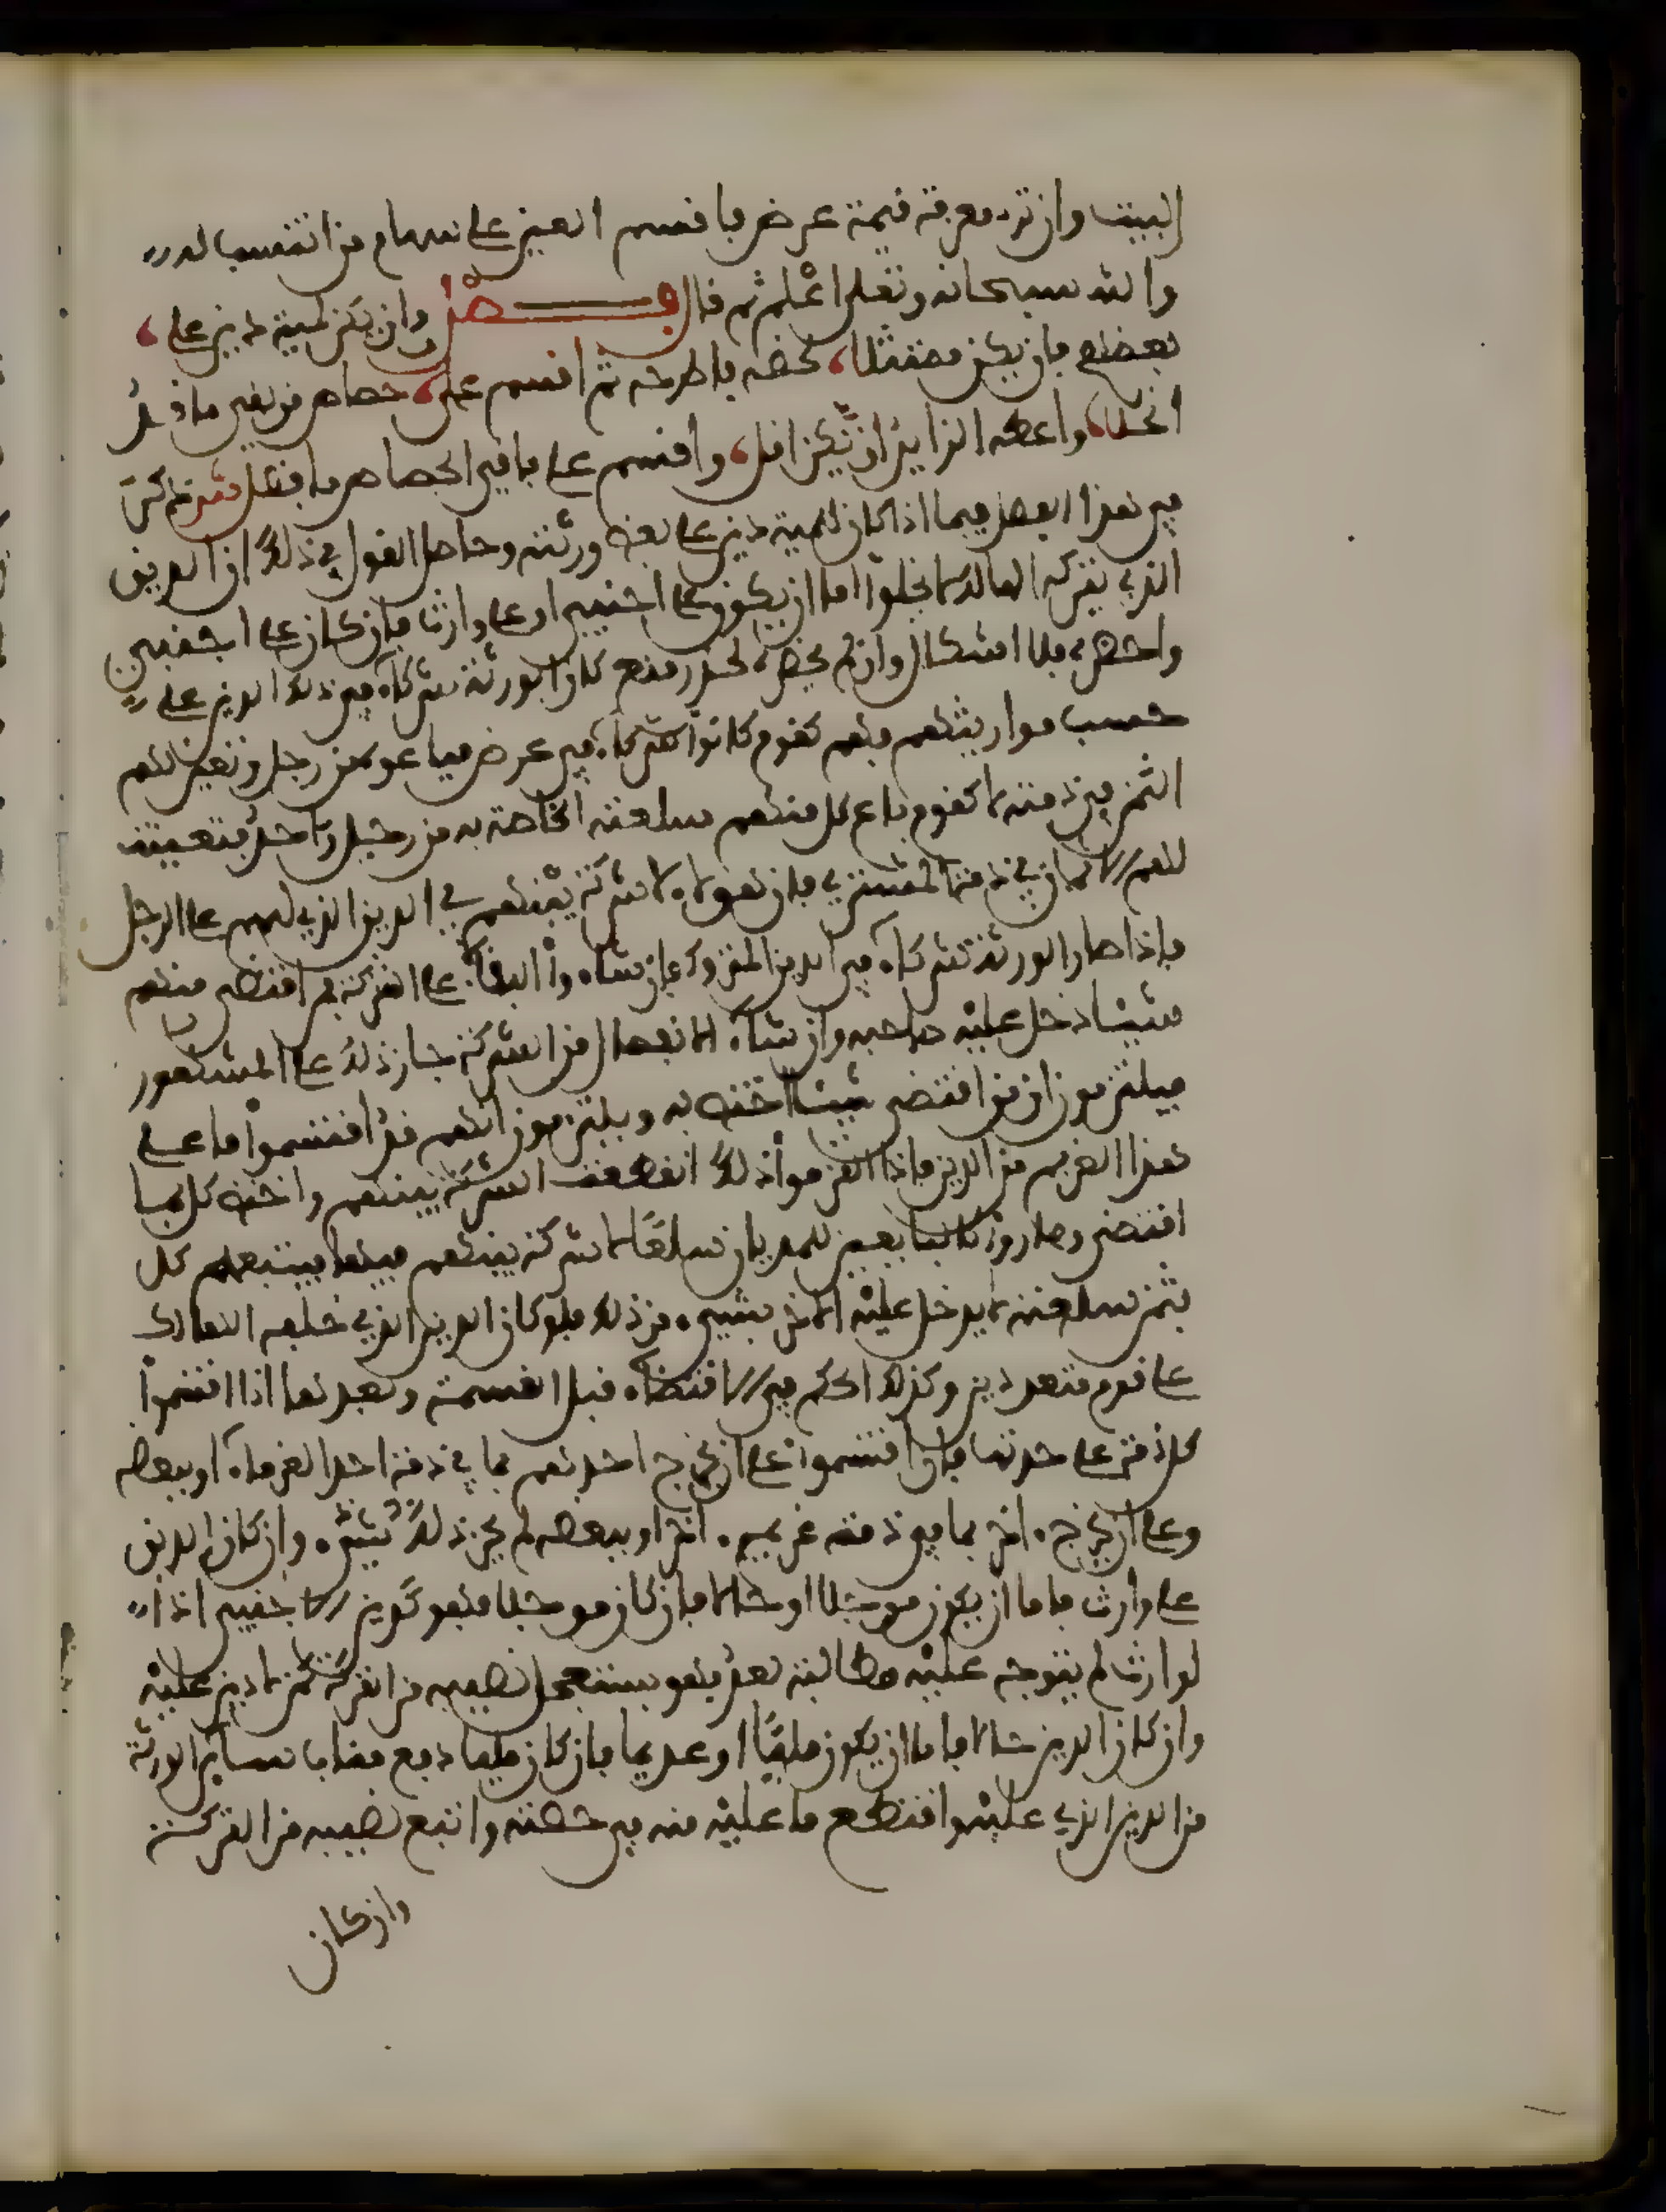 البيت وان ترد معرفة قيمة عرض فاقسم العين على سهام من انتسب له
والله سبحانه وتعلى اعلم ثم قال فصل وان يكن لميت دين على
بعضهم فان يكن ممتثلا، لحضه فاطرحه ثم اقسم على، حصاص من بقي ما قد
انجلا، واعطه الزايد ان يكن اقل، واقسم على باقي الحصاص ما فضل ش ذكر
في هذا الفصل فيما اذا كان للميت دين على بعض ورثته وحاصل القول في ذلك ان الدين
الذي يتركه الهالك لا يخلوا اما ان يكون على اجنبي او على وارث فان كان على اجنبي
واحضر، فلا اشكال وان لم يحضر، لعذر منع كان الورثة شركاء في ذلك الدين على
حسب مواريثهم فهم كقوم كانوا شركاء في عرض فباعوه من رجل وتعين لهم
الثمن في ذمته لا كقوم باع كل منهم سلعته الخاصة به من رجل واحد فتعينت
لهم الاثمان في ذمة المشتري فان هؤلاء لا شركة بينهم في الدين الذي لهم على الرجل
فاذا صار الورثة شركاء في الدين المتروك فان شاءوا البقاء على الشركة فمن اقتضى منهم
شيئا دخل عليه صاحبه وان شاءوا الانفصال من الشركة جاز ذلك على المشهور
فيلتزمون ان من اقتضى شيئا اختص به ويلتزمون انهم قد اقتسموا ما على
هذا الغريم من الدين فاذا التزموا ذلك انقطعت الشركة بينهم واختص كل بما
اقتضى وصاروا كالبايعين للمديان سلعا لا شركة بينهم فيها فيتبعهم كل
بثمن سلعته لا يدخل عليه الاخر بشيء من ذلك فلو كان الدين الذي خلفه الهالك
على قوم متعددين وكذلك الحكم في الاقتضاء قبل القسمة وبعدها اذا اقتسموا
كل ذمة على حدتها فان اقتسموا على ان يخرج احدهم بما في ذمة احد الغرماء او ببعضه
وعلى ان يخرج ءاخر بما في ذمة غريم ءاخر او ببعضه لم يجز ذلك بشيء وان كان الدين
على وارث فاما ان يكون موجلا او حالا فان كان موجلا فهو كدين الاجنبي اذ
الوارث لم يتوجه عليه مطالبة بعد فهو يستعجل نصيبه من التركة كمن لا دين عليه
وان كان الدين حالا فاما ان يكون مليا او عديما فان كان مليا دفع مناب سائر الورثة
من الدين الذي عليه واقتطع ما عليه منه في حصته واتبع نصيبه من التركة
وان كان